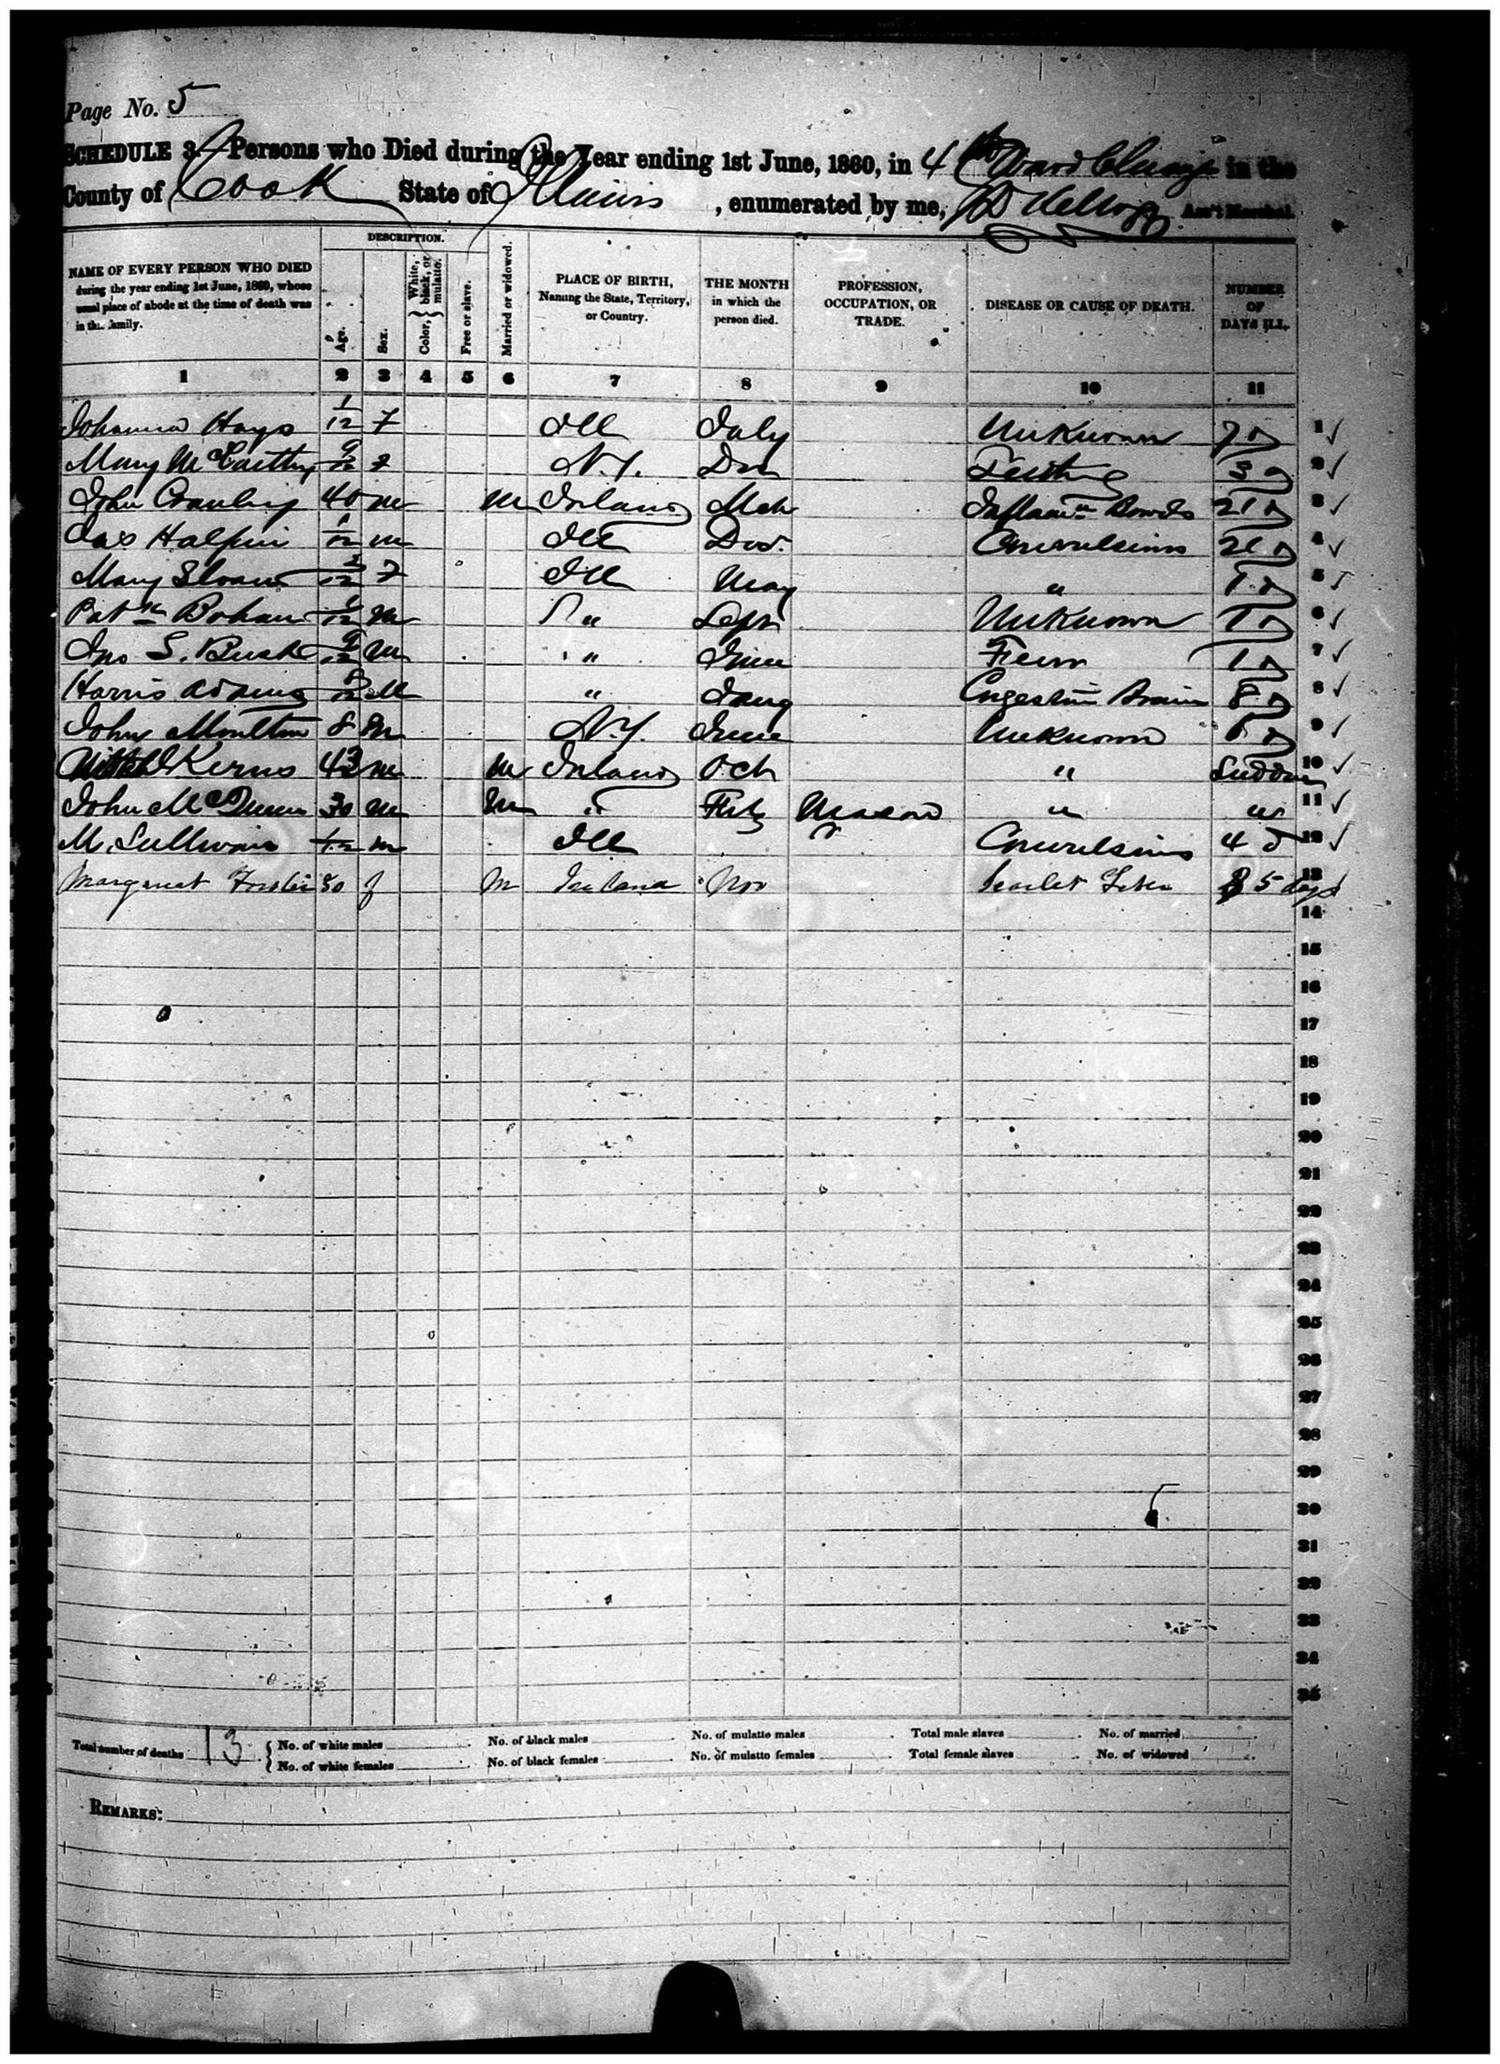 Page No. 5
SCHEDULE 3.—Persons who Died during the Year ending 1st June, 1860, in 4th Ward Chicago in the
County of Cook State of Illinois, enumerated by me, Kellogg Ass't Marshal.
NAME OF EVERY PERSON WHO DIED during the year ending 1st June, 1860, whose usual place of abode at the time of death was in this family.
DESCRIPTION.
Age. Sex. Color, { White, black, or mulatto. Free or slave. Married or widowed.
PLACE OF BIRTH, Naming the State, Territory, or Country.
THE MONTH in which the person died.
PROFESSION, OCCUPATION, OR TRADE.
DISEASE OR CAUSE OF DEATH.
NUMBER OF DAYS ILL.
1 2 3 4 5 6 7 8 9 10 11
Johanna Hays 1/12 F Ill July Unknown 7 d 1 ✓
Mary McCarthy 9/12 F N.Y. Dec Teething 3 d 2 ✓
John 40 m m Ireland Mch Inflamn Bowels 21 d 3 ✓
Jas Halpin 1/12 m Ill Dec. Convulsions 4 ✓
Mary Sloan /12 F Ill May " 1 d 5 ✓
Patk Bohan /12 m " Sept Unknown 1 d 6 ✓
Jno S. Bush 9/12 m " June Fever 1 d 7 ✓
Harris Adams 8/12 M " Jany Congestion Brain 8 d 8 ✓
John Moulton 8 m N.Y. June Unknown d 9 ✓
Kerns 43 m m Ireland Oct " Sudden 10 ✓
John Mc 30 m m " Feb Mason " " 11 ✓
M. Sullivan 1/12 m Ill Convulsions 4 d 12 ✓
Margaret 30 f m Ireland Nov Scarlet Fever 5 days 13
14
15
16
17
18
19
20
21
22
23
24
25
26
27
28
29
30
31
32
33
34
35
Total number of deaths 13 { No. of white males No. of black males No. of mulatto males Total male slaves No. of married
No. of white females No. of black females No. of mulatto females Total female slaves No. of widowed
REMARKS: